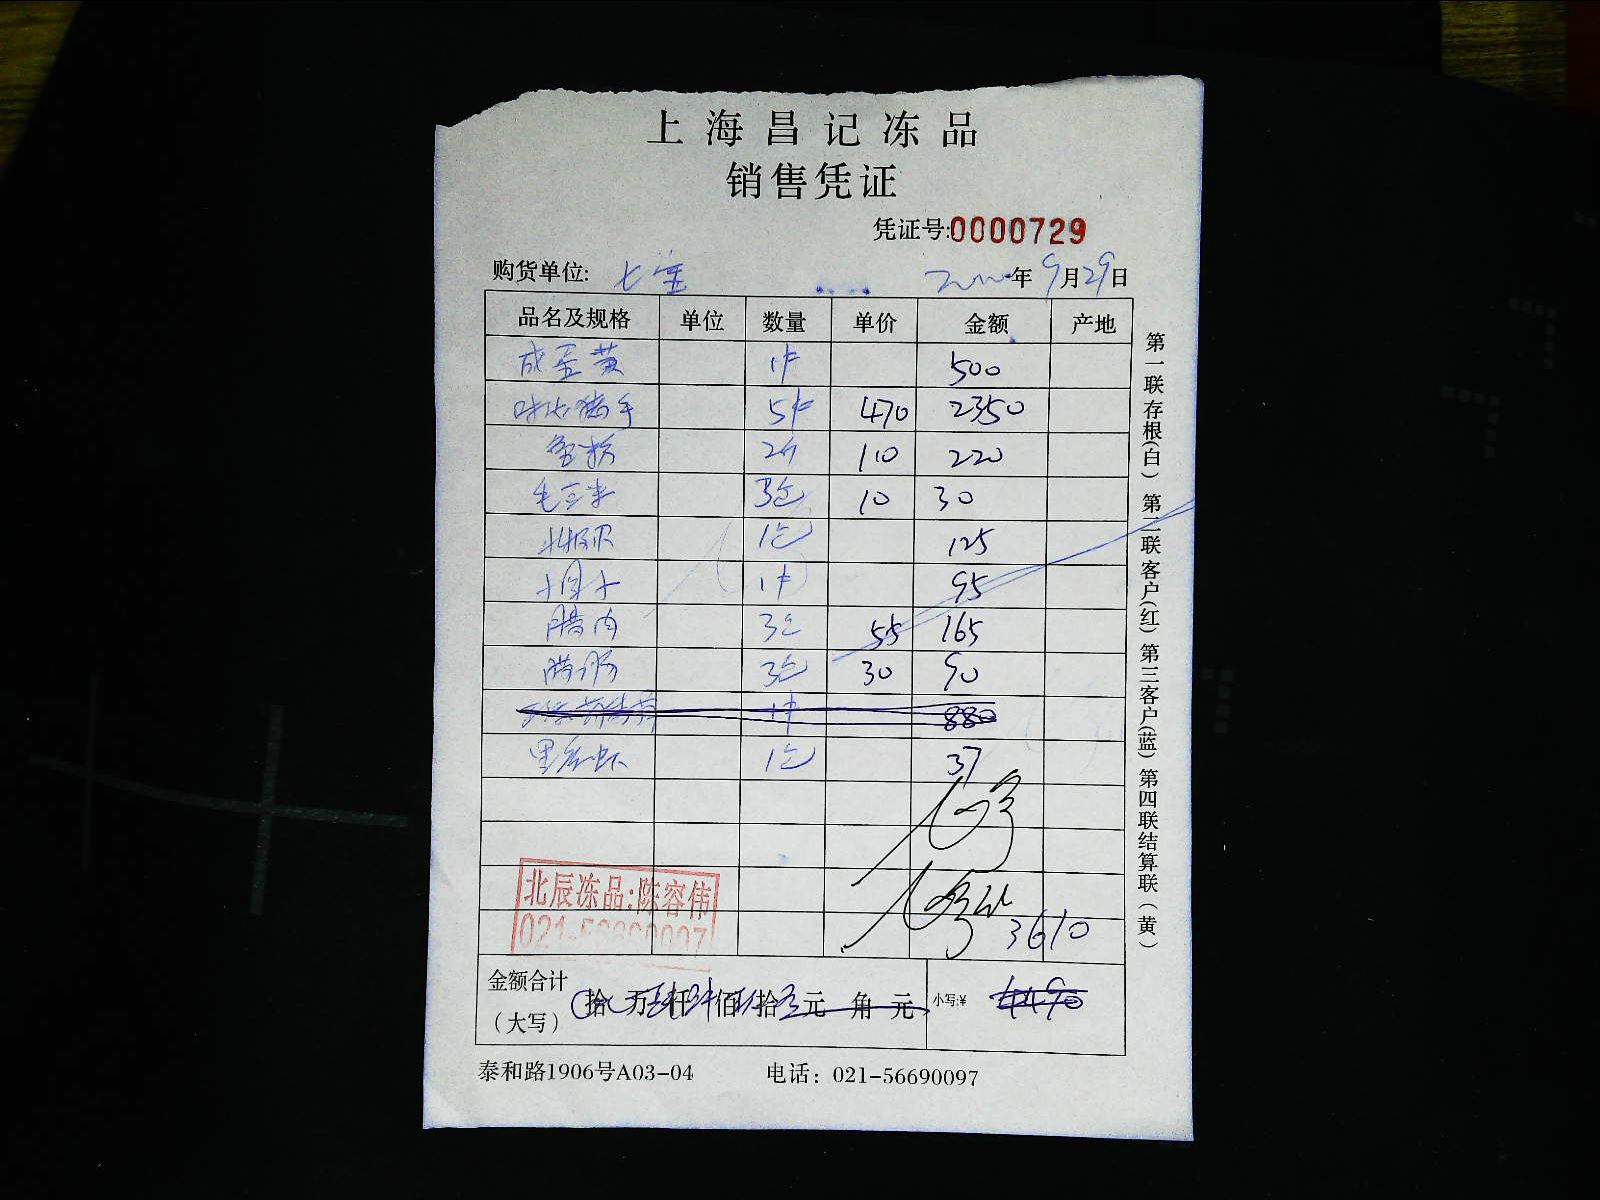 上海昌记冻品
销售凭证
凭证号:0000729
购货单位: 七宝 年 9月29日
品名及规格 单位 数量 单价 金额 产地
成蛋黄 1件 500
5件 470 2350
2件 110 220
毛豆米 3包 10 30
北极贝 1包 125
1件 95
腊肉 3包 55 165
腊肠 3包 30 90
1件 880
黑虎虾 1包 37
北辰冻品:陈容伟
3610
金额合计
(大写) 拾 万 仟 佰 拾 元 角 元 小写:¥ 4490
泰和路1906号A03-04 电话: 021-56690097
第一联存根(白) 第二联客户(红) 第三客户(蓝) 第四联结算联(黄)